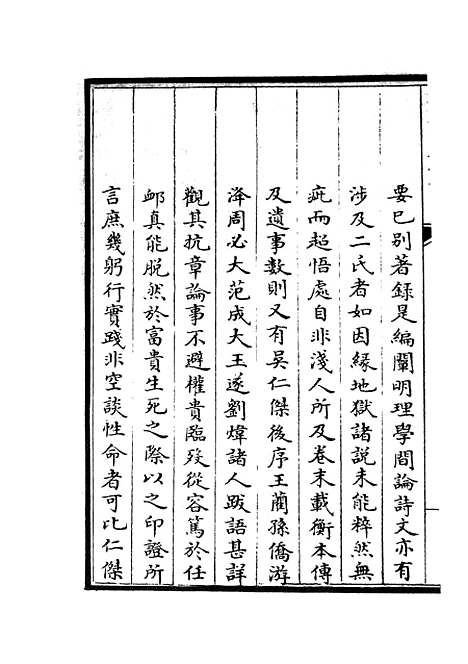 要已別著錄是編闡明理學間論詩文亦有
涉及二氏者如因緣地獄諸説未能粹然無
疵而超悟處自非淺人所及卷末載衡本傳
及遺事數則又有吳仁傑後序王藺孫僑游
泽周必大范成大王遂劉煒諸人跋語甚詳
觀其抗章論事不避權貴臨殁從容篤於任
䘏真能脱然於富貴生死之際以之印證所
言庶幾躬行實踐非空談性命者可比仁傑